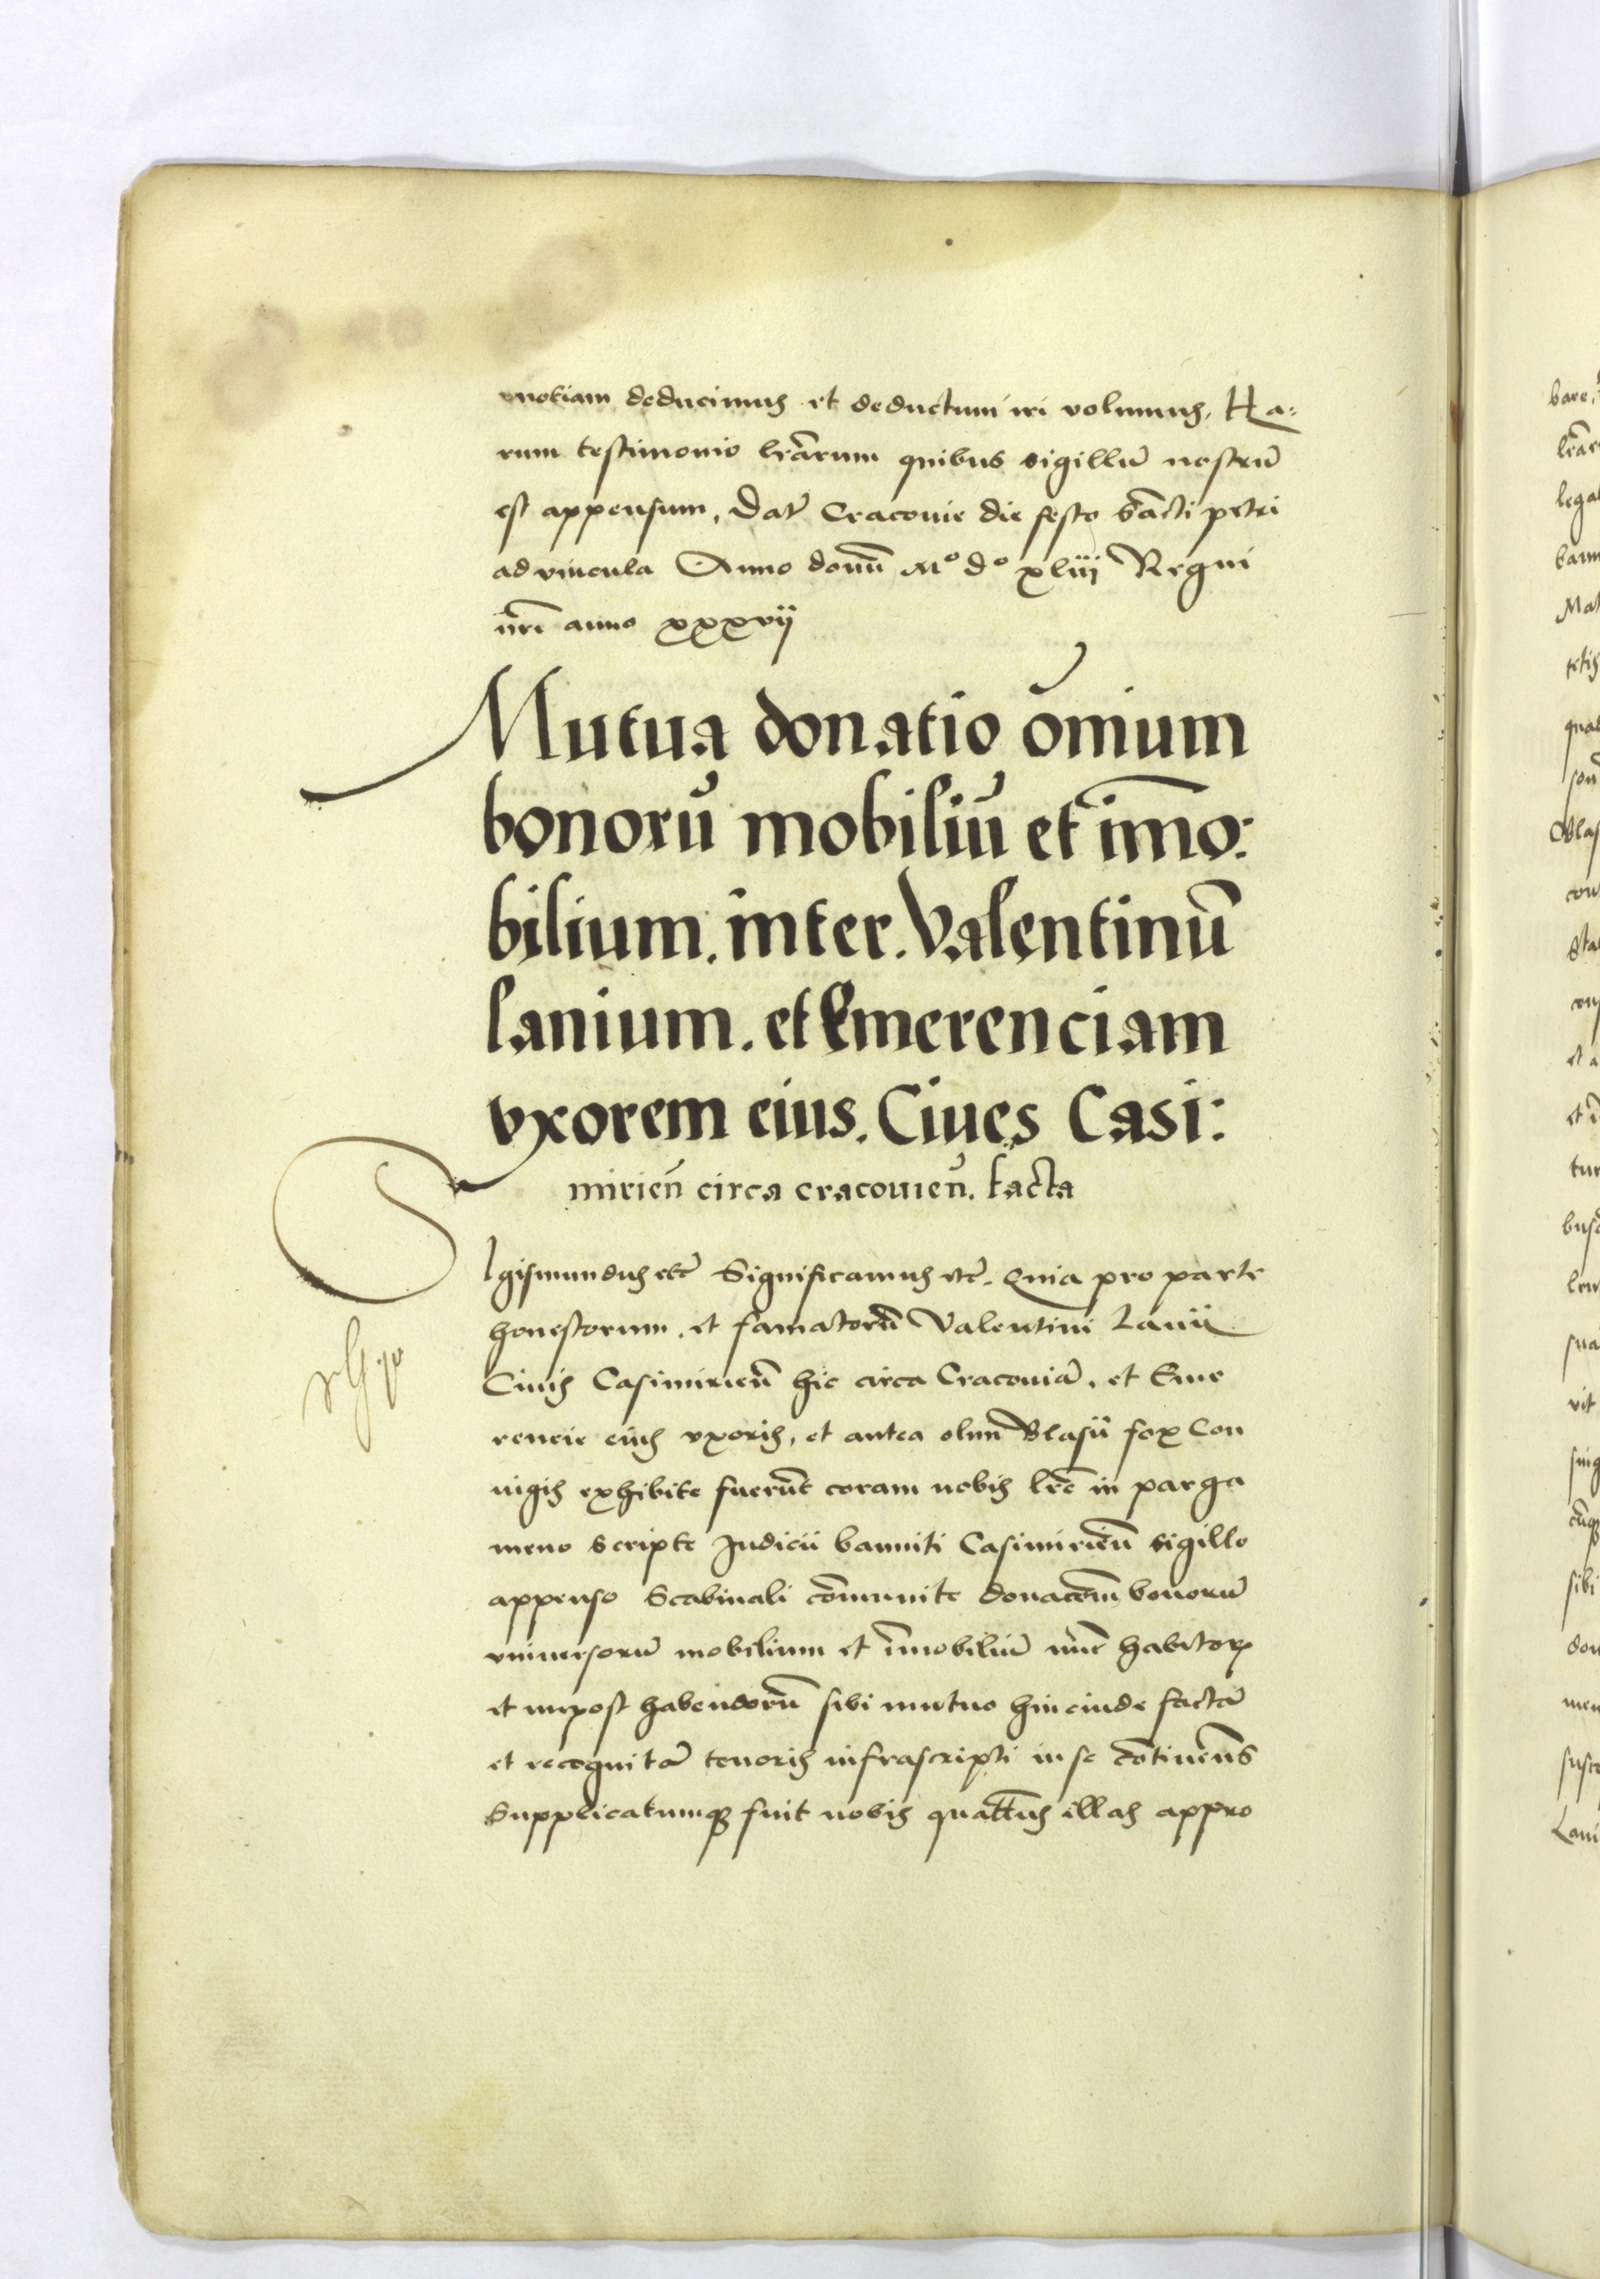 motiam deducimus et deductum iri volumus. Ha-
rum testimonio lrārum quibus sigillū nostrū
est appensum, Datē Cracovie die festo Sācti petri
ad vincula Anno domī Mo do xliij Regni
nrī anno xxxvij
Mutua donatio ōmium
bonorū mobiliū et īmo:
bilium. inter. Valentinū
lanium. et Emerenciam
vxorem eius. Ciues Casi:
mirien̄ circa cracouien̄. facta
SIgismundus etc̄ Significamus etc̄. Quia pro parte
honestorum. et famatorū Valentini Lanii
Ciuis Casimirien̄ hic circa Cracouiā. et Eme
rencie eius vxoris, et antea olim Blasii fox Con
iugis exhibite fuerūt coram nobis lrē in parga
meno scripte Iudicii banniti Casimirien̄ sigillo
appenso Scabinali cōmunite donacōem bonorū
vniuersorū mobilium et īmobiliū nūc habitorꝝ
et inpost habendorū sibi mutuo hinc inde factā
et recognitā tenoris infrascripti in se cōtinen̄s
Supplicatumqꝫ fuit nobis quatēus illas appro
bare,
legal
Mat